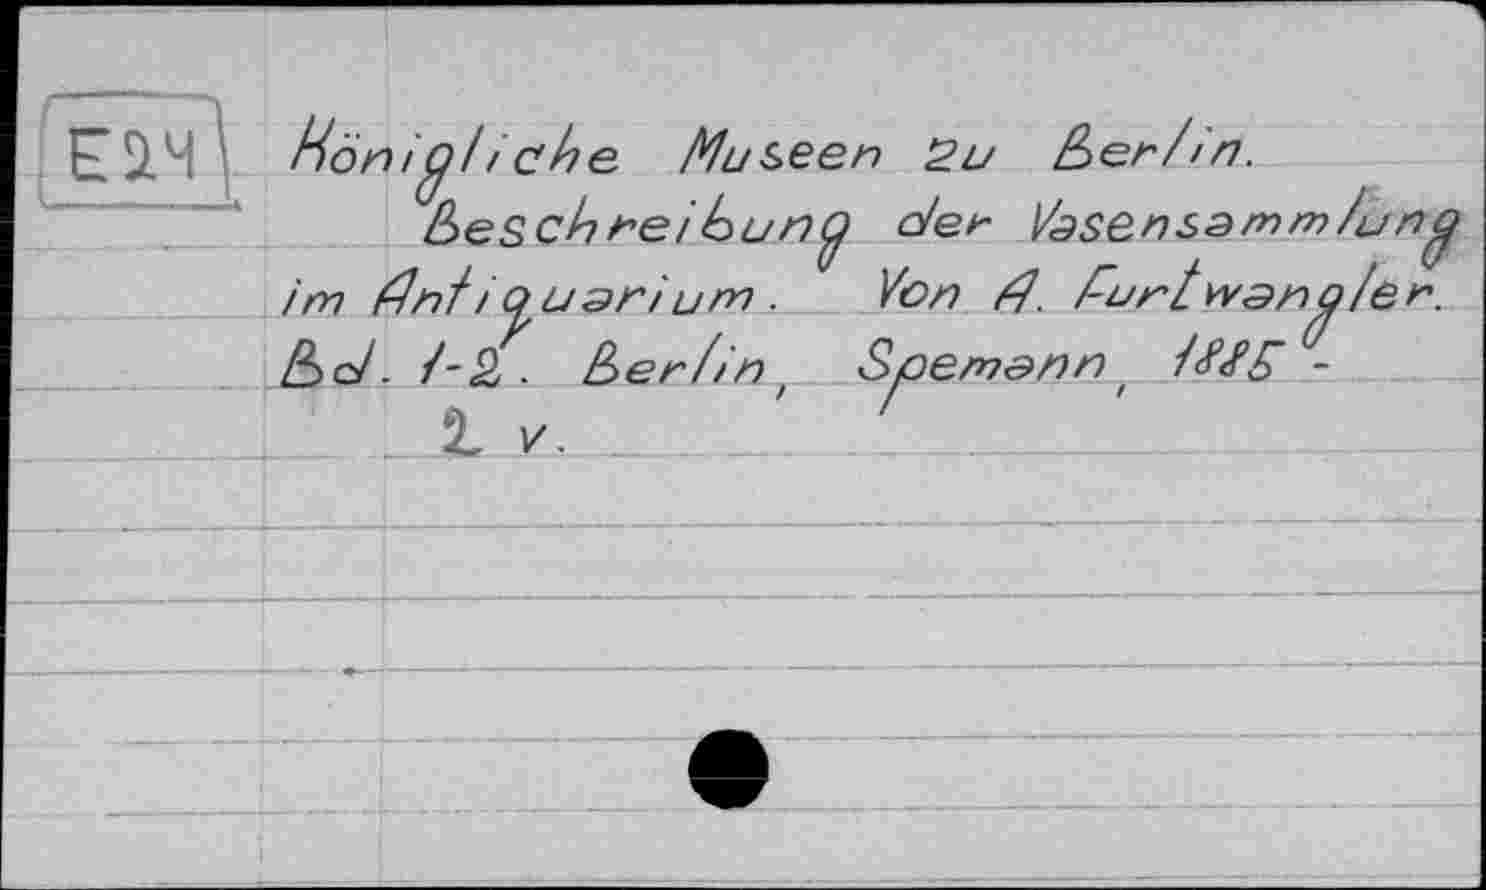 E24
Königliche Museen zu Berlin.
Beschreibung der Vasensammlung
im Antiquarium. Von A. Furtwangler.
Bd. 1-2. Berlin, Spemann, 1885-
2 v.